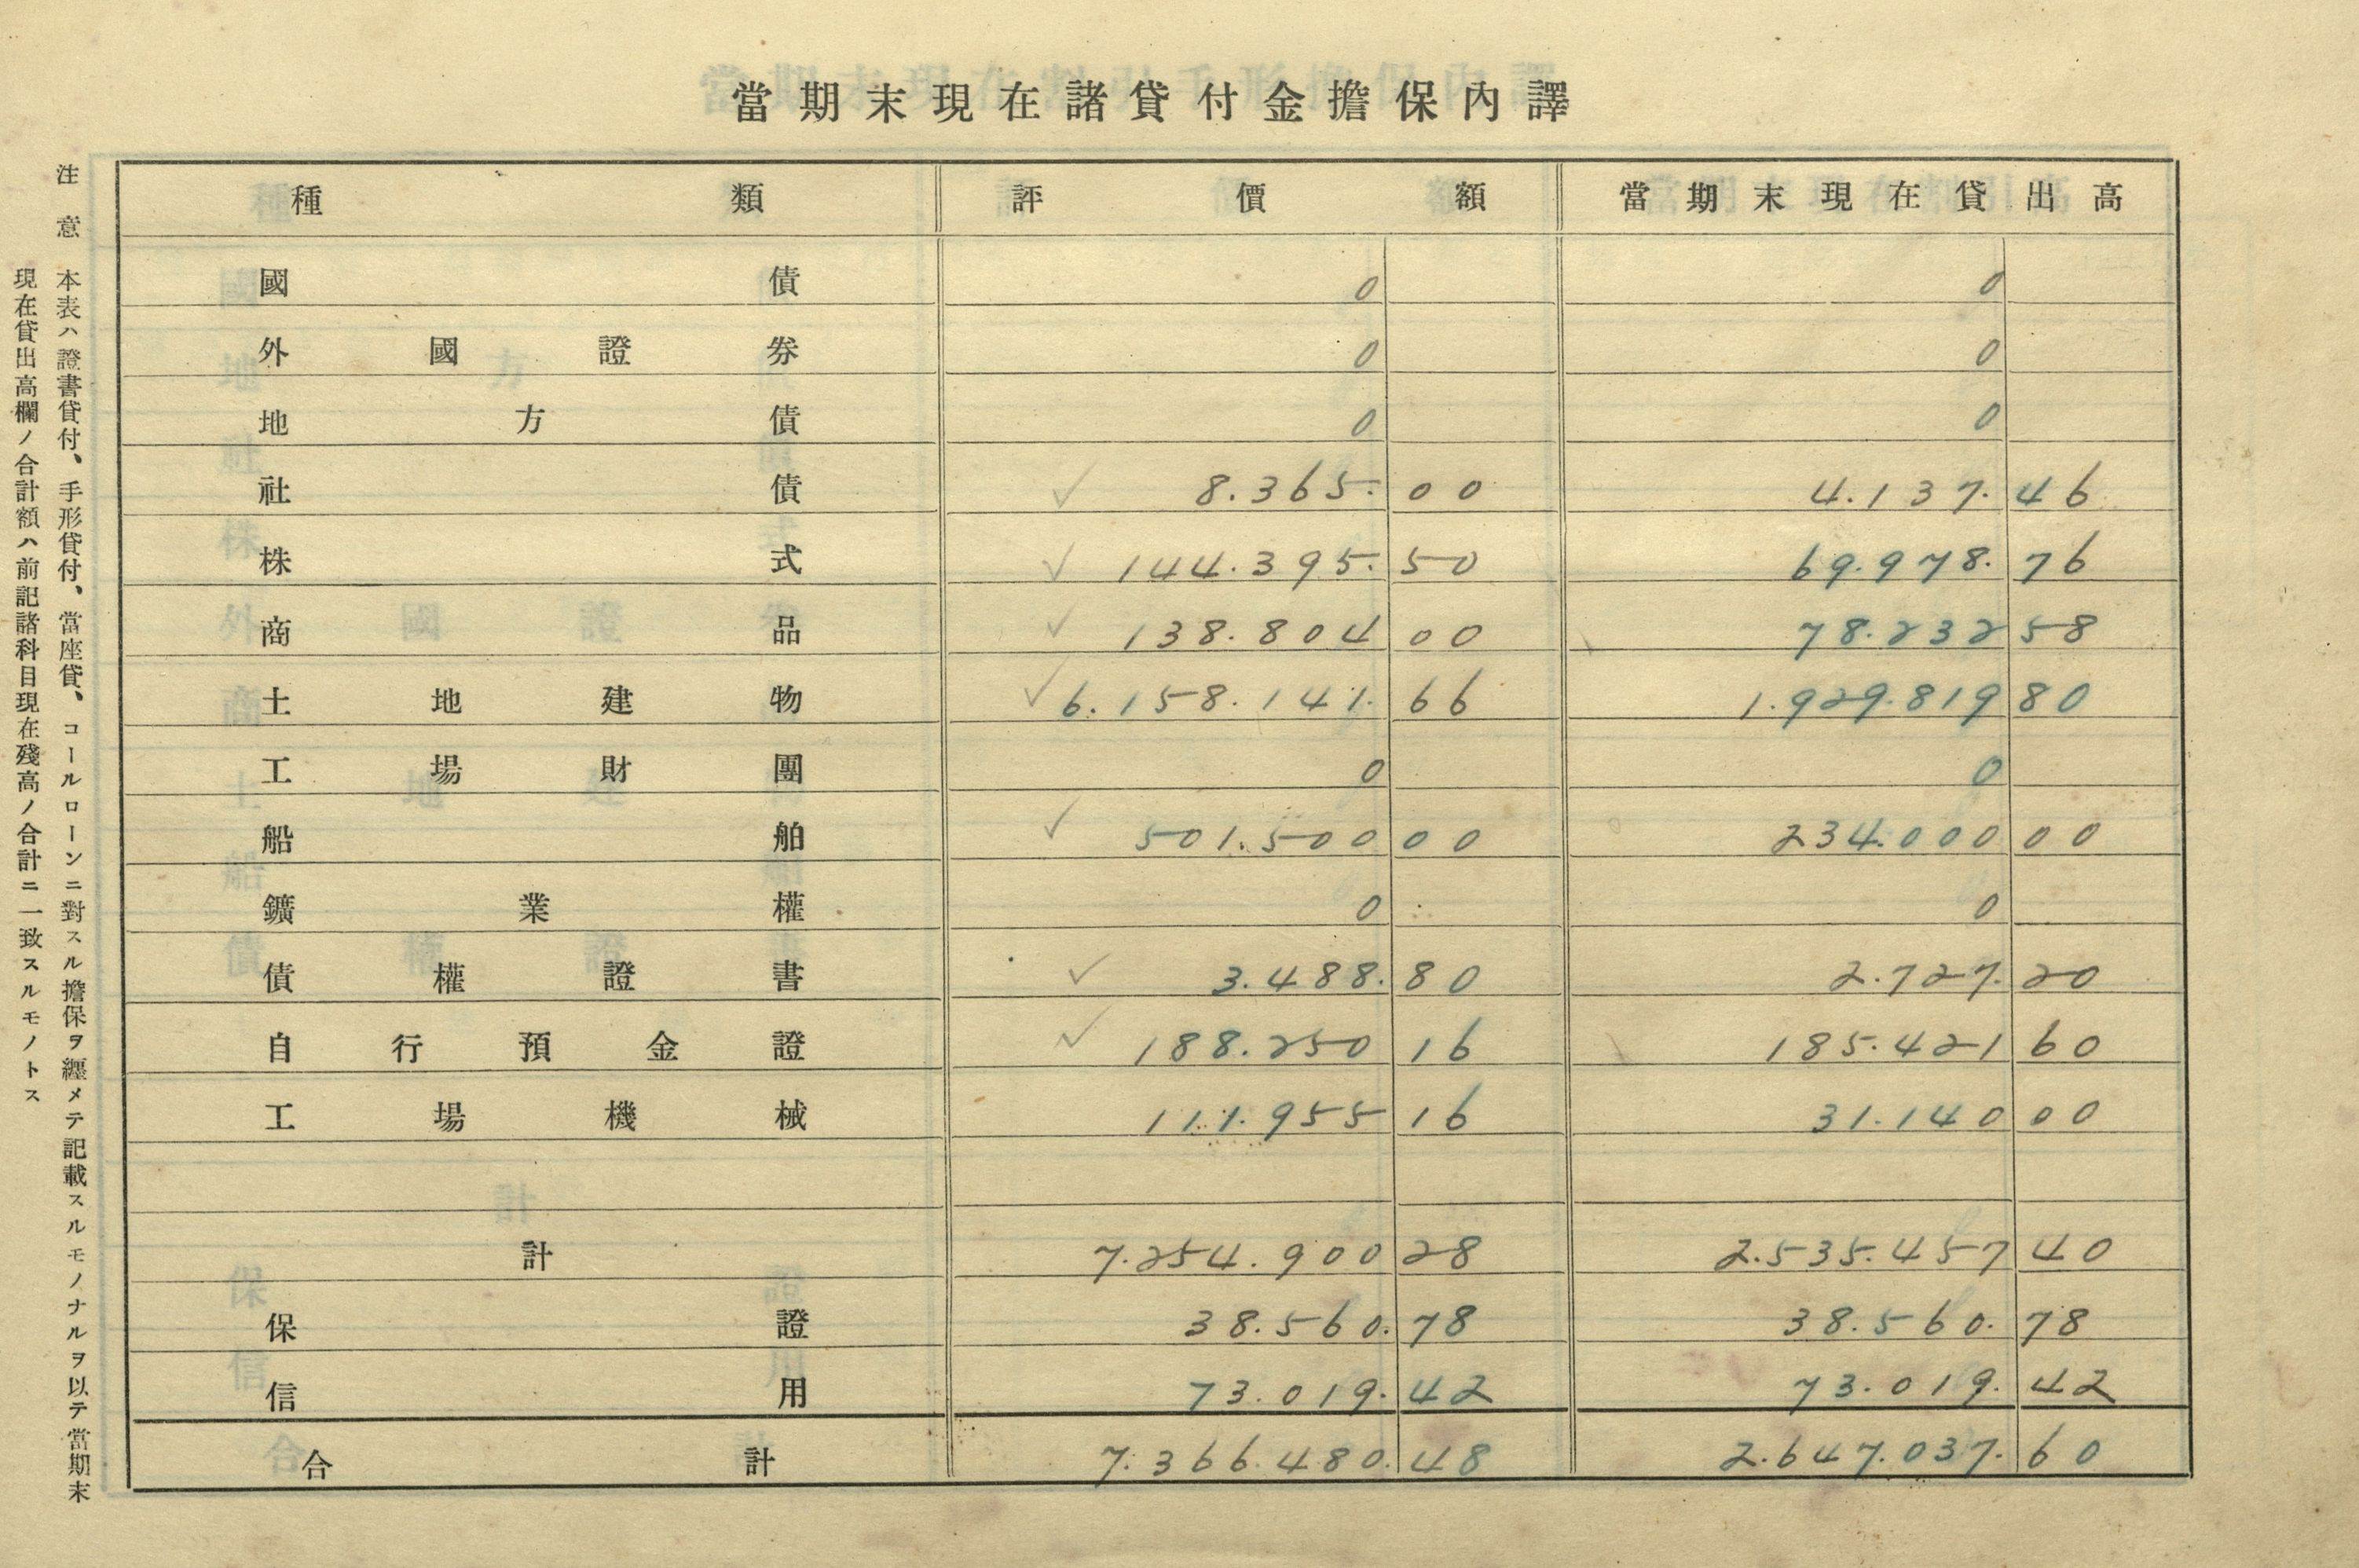 當期末現在諸貸付金擔保內譯
種類 評價額 當期末現在貸出高
國債 0 0
外國證券 0 0
地方債 0 0
社債 ✓ 8.365.00 4.137.46
株式 ✓ 144.395.50 69.978.76
商品 ✓ 138.804 00 78.232 58
土地建物 ✓ 6.158.141.66 1.929.819 80
工場財團 0 0
船舶 ✓ 501.500 00 234.000 00
鑛業權 0 0
債權證書 ✓ 3.488.80 2.727.20
自行預金證 ✓ 188.250 16 185.421 60
工場機械 111.955 16 31.140 00
計 7.254.900 28 2.535.457 40
保證 38.560.78 38.560.78
信用 73.019.42 73.019.42
合計 7.366.480.48 2.647.037.60
注意 本表ハ證書貸付、手形貸付、當座貸、コールローンニ對スル擔保ヲ纒メテ記載スルモノナルヲ以テ當期末
現在貸出高欄ノ合計額ハ前記諸科目現在殘高ノ合計ニ一致スルモノトス